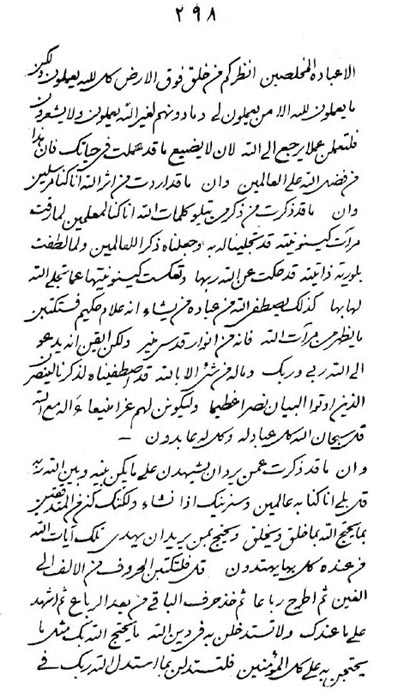 ٢٩٨
الا عباده المخلصين انظر كم من خلق فوق الارض كل لله يعملون ولكن
ما يعملون لله الا من يعملون لى و مادونهم لغير الله يعملون ولا يشعرون
فلتعملن عملا يرجع الى الله لان لا يضيع ما قد عملت فى حياتك فان هذا
من فضل الله على العالمين وان ما قد اردت من اثر الله انا كنا مرسلين
وان ما قد ذكرت من ذكر من يتلو كلمات الله انا كنا لمعلمين لما رقت
مرآت كينونيته قد تجلينا له به وجعلناه ذكرا للعالمين ولما لطفت
بلورية ذاتيته قد حكت عن الله ربها وتعكست كينونيتها عما تجلى الله
لها بها كذلك يصطفى الله من عباده من يشاء انه علام حكيم فستكتبن
ما يظهر من مرآت الله فانه من انوار قدس منير ولكن ايقن انه يدعو
الى الله ربى وربك وماله من شئ الا بالله قد اصطفيناه لذكرنا لينصرن
الذين اوتوا البيان نصرا عظيما وليكونن لهم عزا منيعا ءاله مع الله
قل سبحان الله كل عباد له وكل له عابدون
وان ما قد ذكرت عمن يردان يشهدن على ما يكن بينه وبين الله ربه
قل بلى انا كنا به عالمين وسنرينك اذا نشاء ولكنك كن من المقتدرين
بما يحتج الله بما خلق ويخلق وتحتج بمن يريد ان يهدى تلك آيات الله
من عنده كل بها يهتدون قل فلتكتبن الحروف من الالف الى
الغين ثم اطرح رباعا ثم خذ حرف الباقى من بعد الرباع ثم اشهد
على ما عندك ولا تستدخلن به فى دين الله ما يحتج الله بك مثل ما
يحتجن به على كل المؤمنين فلتستدلن بما استدل الله ربك فى